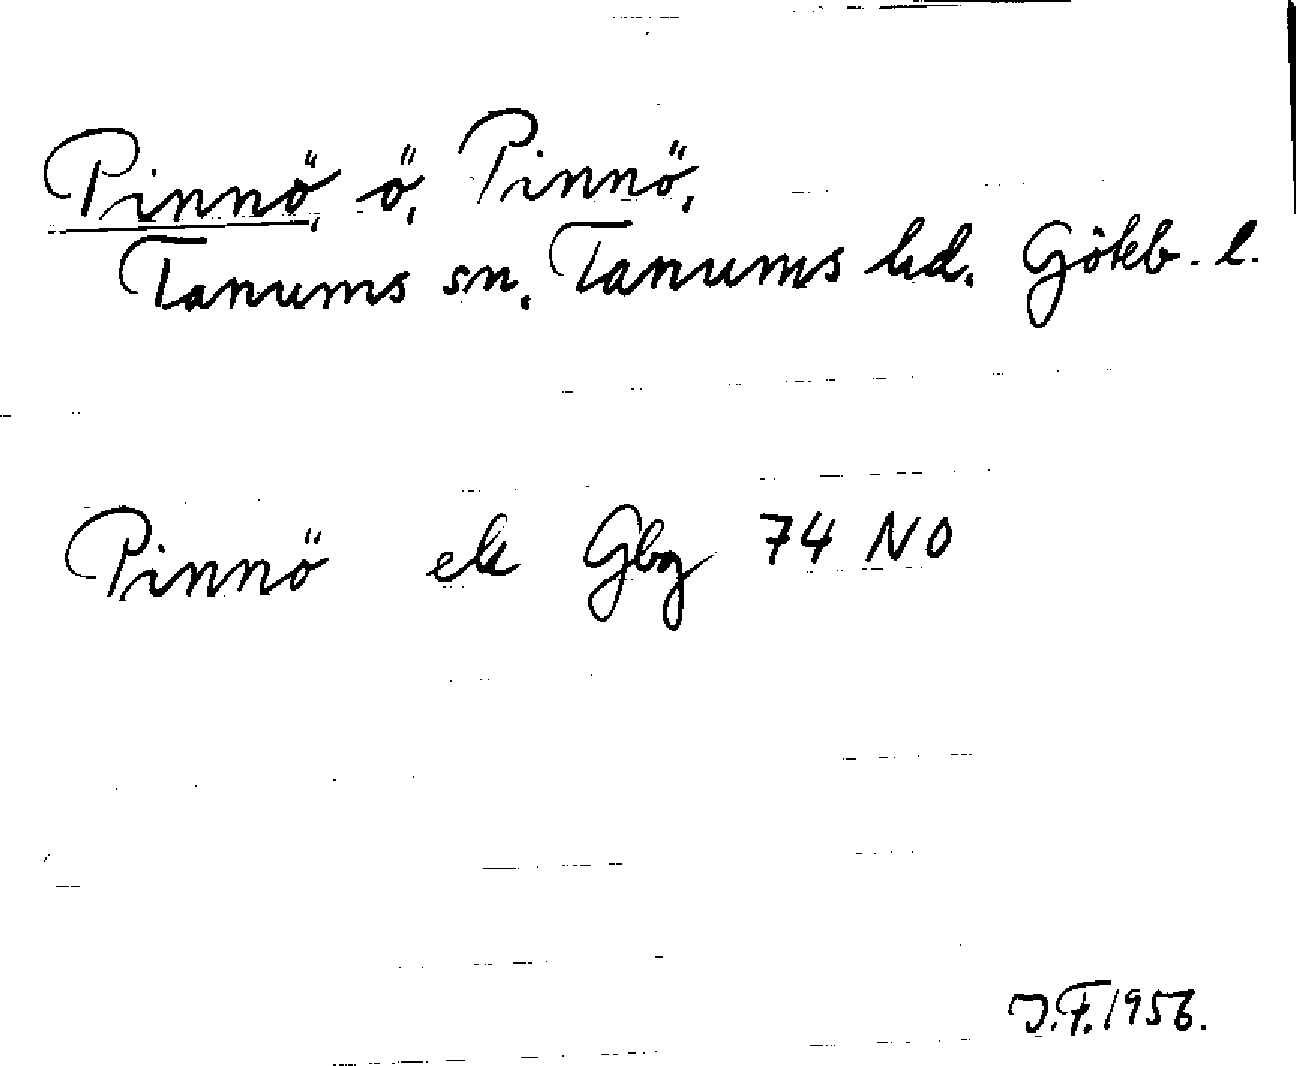 Pinnö, ö, Pinnö,
Tanums sn, Tanums hd. Götkb. l.
Pinnö ek Gbg 74 NO
J.F. 1956.